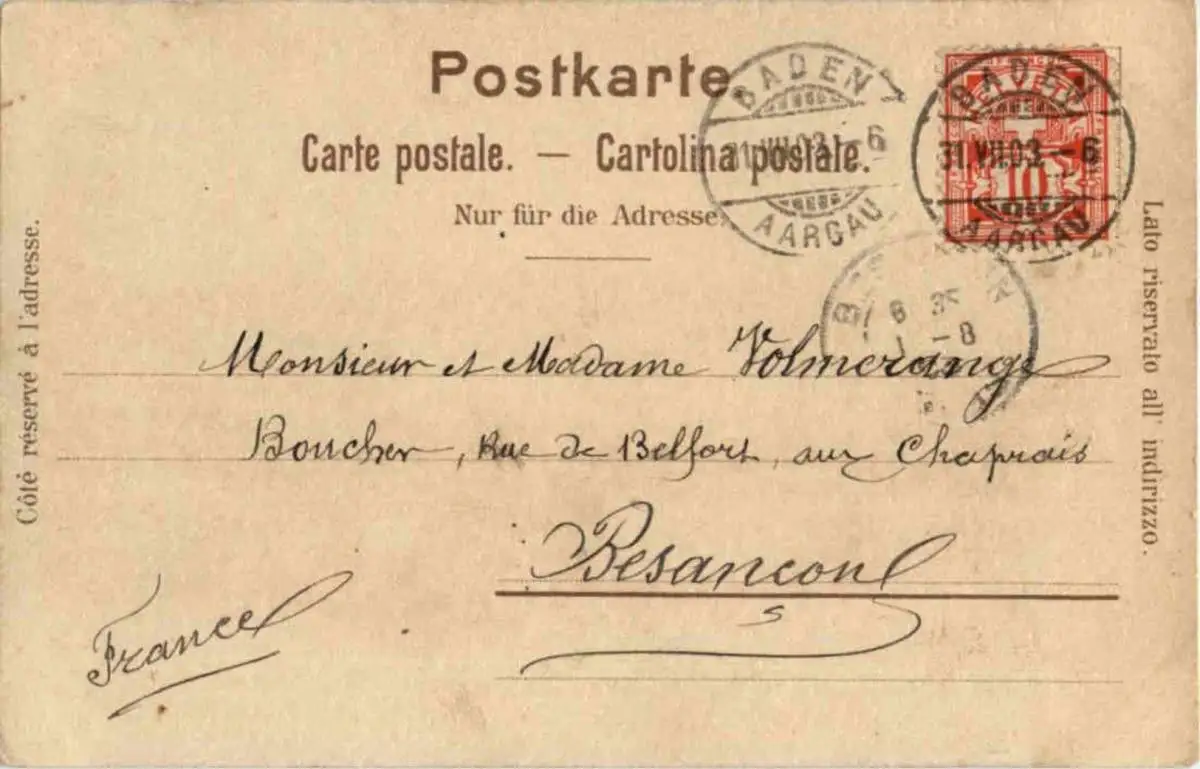 Postkarte
Carte postale. — Cartolina postale.
Nur für die Adresse.
BADEN
31.VII.03.-6
AARGAU
BADEN
31.VII.03.-6
AARGAU
10
6 35
1 -8
Côté réservé à l'adresse.
Lato riservato all' indirizzo.
Monsieur et Madame Volmerange
Boucher, Rue de Belfort, aux Chaprais
Besançon
France